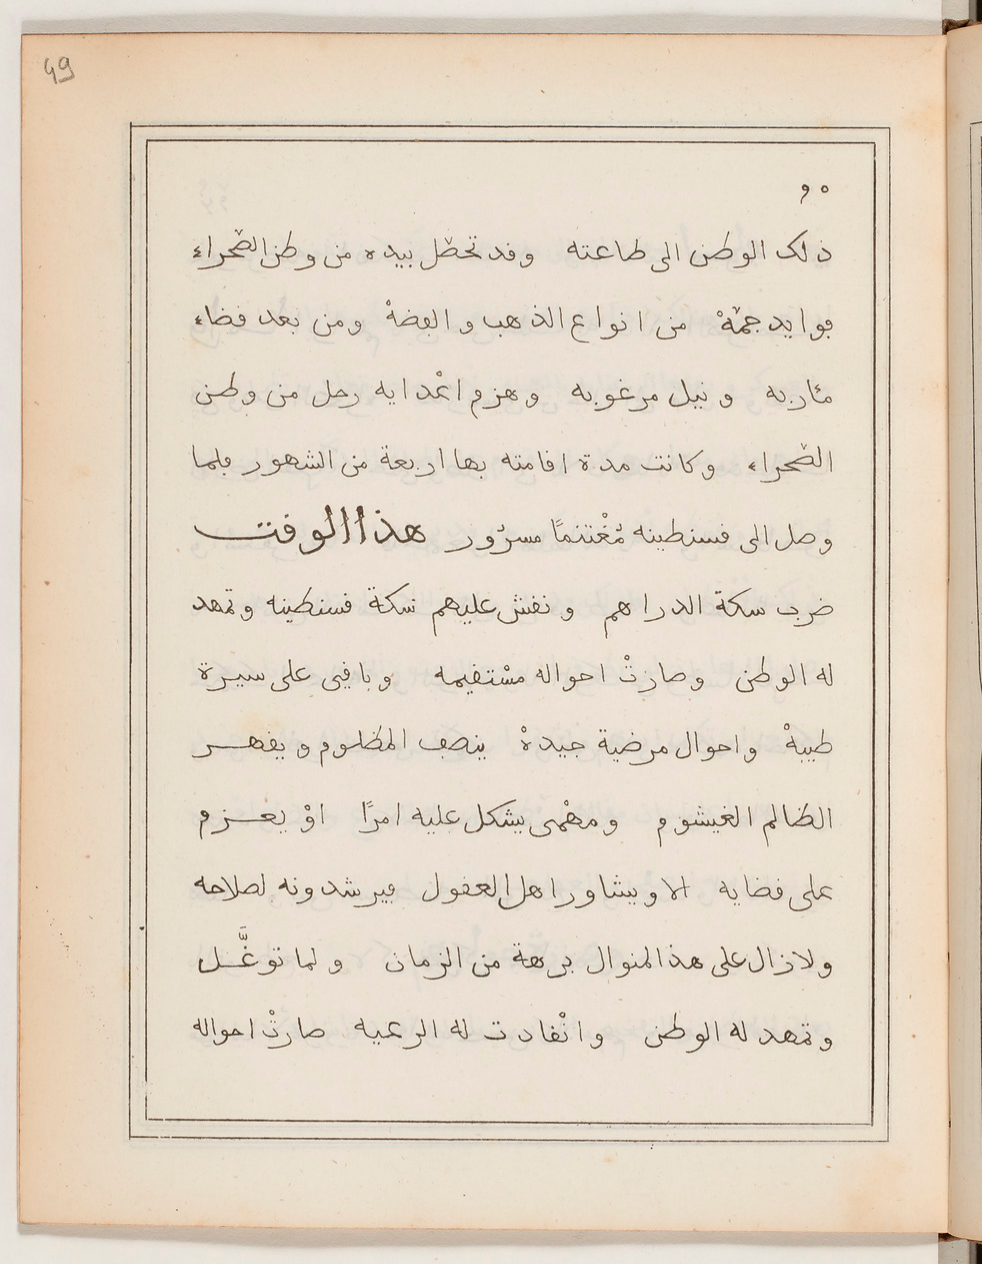 49
90
ذلك الوطن الى طاعته وقد تحصّل بيده من وطن الصّحراء
فوايد جمّةْ من انواع الذهب والفضةْ ومن بعد قضاء
مئاربه ونيل مرغوبه وهزم اعْدايه رحل من وطن
الصّحراء وكانت مدة اقامته بها اربعة من الشهور فلما
وصل الى قسنطينه مُغْتنمًا مسرُور هذا الوقت
ضرب سكة الدراهم ونقش عليهم سكة قسنطينه وتمهد
له الوطن وصارتْ احواله مسْتقيمه وباقى على سيرة
طيبةْ واحوال مرضية جيدةْ ينصف المظلوم ويقهر
الظالم الغيشوم ومهْمى يشكل عليه امرًا اوْ يعزم
على قضايه الا ويشاور اهل العقول فيرشدونه لصلاحه
ولازال على هذ المنوال برهة من الزمان ولما توغَّل
وتمهد له الوطن وانْقادت له الرعيه صارتْ احواله